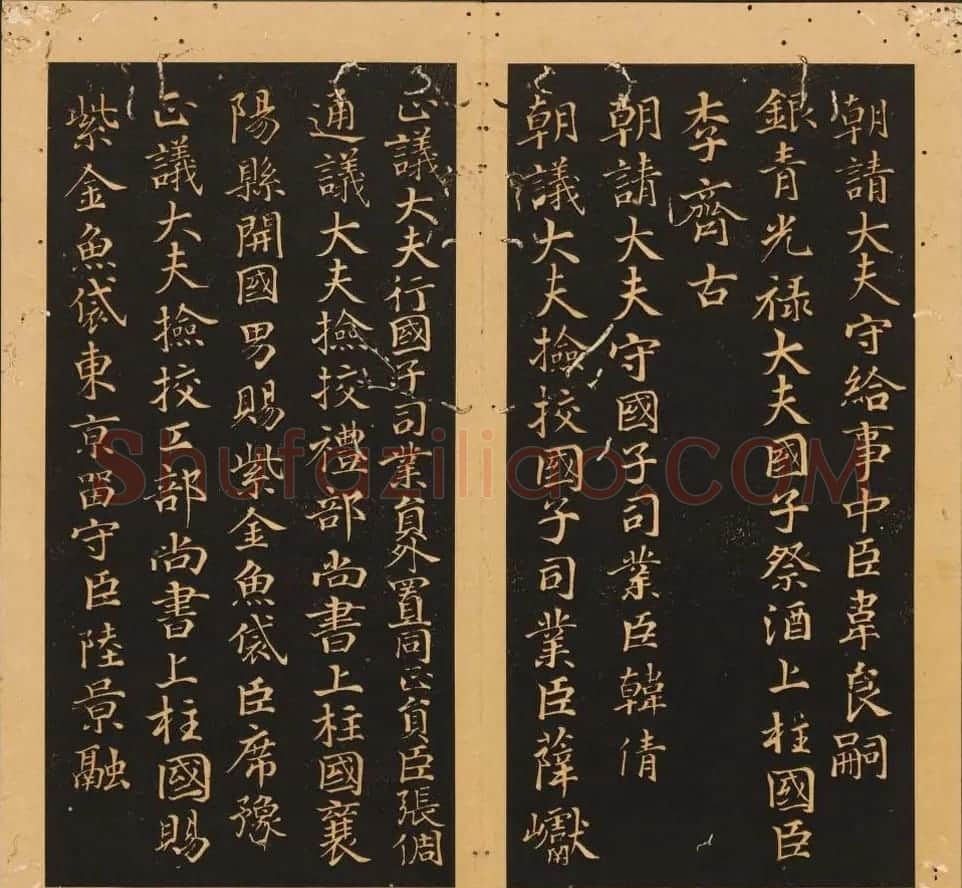 朝請大夫守給事中臣韋良嗣
銀青光祿大夫國子祭酒上柱國臣
李齊古
朝請大夫守國子司業臣韓倩
朝議大夫撿挍國子司業臣薛巘
正議大夫行國子司業員外置同正員臣張倜
通議大夫撿挍禮部尚書上柱國襄
陽縣開國男賜紫金魚袋臣席豫
正議大夫撿挍工部尚書上柱國賜
紫金魚袋東京畱守臣陸景融
Shufaziliao.COM